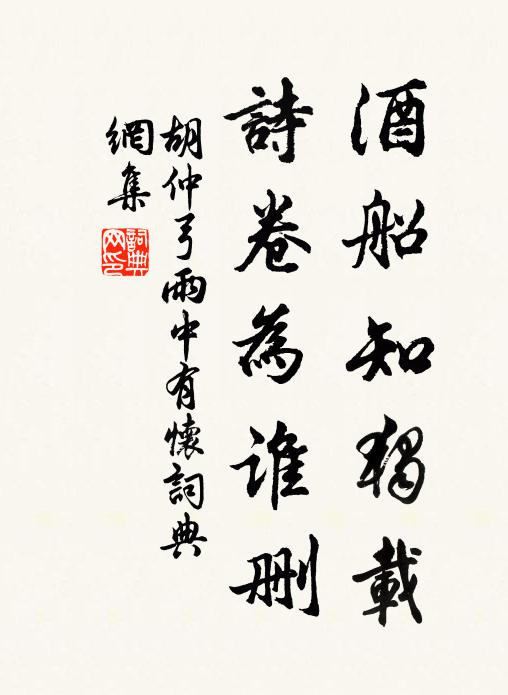 酒船知獨載
詩卷為誰刪
胡仲弓雨中有懷詞典
網集
詞典
网印